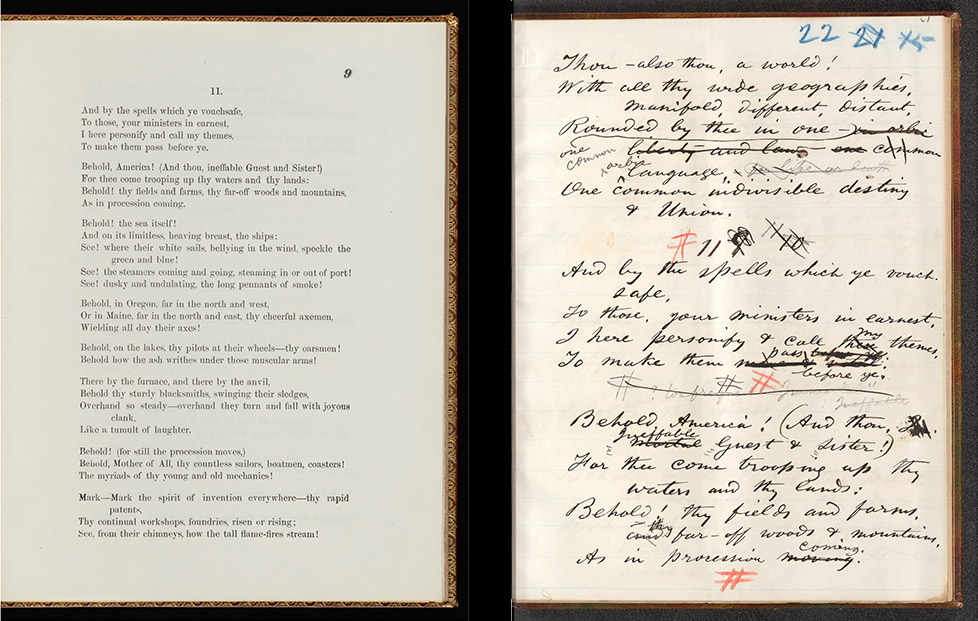 9
11.
And by the spells which ye vouchsafe,
To those, your ministers in earnest,
I here personify and call my themes,
To make them pass before ye.
Behold, America! (And thou, ineffable Guest and Sister!)
For thee come trooping up thy waters and thy lands:
Behold! thy fields and farms, thy far-off woods and mountains,
As in procession coming.
Behold! the sea itself!
And on its limitless, heaving breast, the ships:
See! where their white sails, bellying in the wind, speckle the
green and blue!
See! the steamers coming and going, steaming in or out of port!
See! dusky and undulating, the long pennants of smoke!
Behold, in Oregon, far in the north and west,
Or in Maine, far in the north and east, thy cheerful axemen,
Wielding all day their axes!
Behold, on the lakes, thy pilots at their wheels—thy oarsmen!
Behold how the ash writhes under those muscular arms!
There by the furnace, and there by the anvil,
Behold thy sturdy blacksmiths, swinging their sledges,
Overhand so steady—overhand they turn and fall with joyous
clank,
Like a tumult of laughter.
Behold! (for still the procession moves,)
Behold, Mother of All, thy countless sailors, boatmen, coasters!
The myriads of thy young and old mechanics!
Mark—Mark the spirit of invention everywhere—thy rapid
patents,
Thy continual workshops, foundries, risen or rising;
See, from their chimneys, how the tall flame-fires stream!
22 21 15
Thou – also thou, a world!
With all thy wide geographies,
manifold, different, distant,
Rounded by thee in one – in orbic
one liberty and law – one common
common orbic
language,
One common indivisible destiny
& Union.
# 11
And by the spells which ye vouch-
safe,
To those, your ministers in earnest,
I here personify & call my themes,
To make them pass
before ye.
# # #
Ineffable
Behold, America! (And thou,
Ineffable
Guest & Sister!)
For thee come trooping up thy
waters and thy lands:
Behold! thy fields and farms,
thy
and far-off woods & mountains,
coming.
As in procession moving.
#